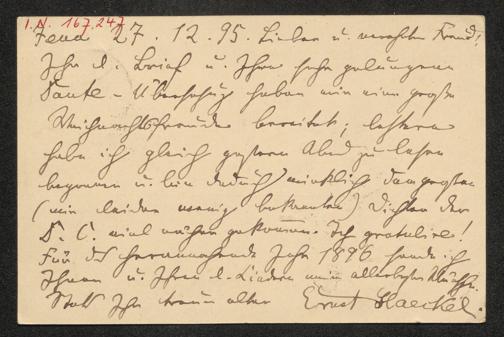 I.N. 167.247
Jena 27. 12. 95. Lieber u. verehrter Freund!
Ihr l. Brief u. Ihre sehr gelungene
Dante-Übersetzung haben mir eine große
Weihnachtsfreude bereitet; letztere
habe ich gleich gestern Abend zu lesen
begonnen u. bin dadurch wirklich dem großen
(mir leider wenig bekannten) Dichter der
D. C. viel näher gekommen. Ich gratulire!
Für das herannahende Jahr 1896 sende ich
Ihnen u. Ihren l. Kindern mein allerbesten Wünsche.
Stets Ihr treuer alter Ernst Haeckel.